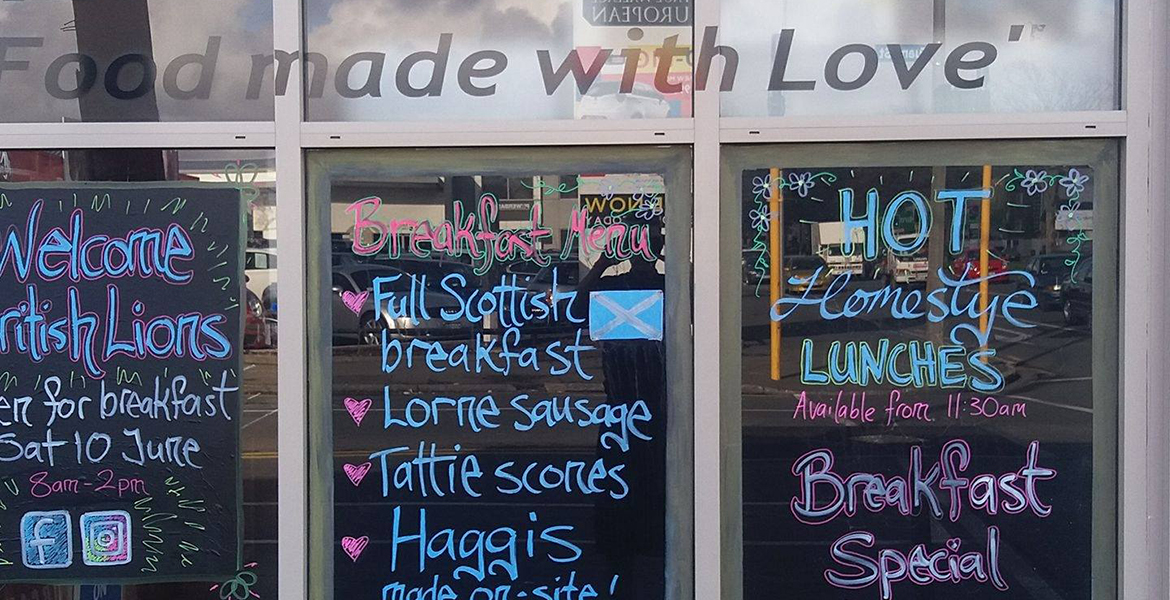 Food made with Love'
Welcome
British Lions
en for breakfast
Sat 10 June
8am-2pm
f
Breakfast Menu
Full Scottish
breakfast
Lorne sausage
Tattie scones
Haggis
made on-site!
HOT
Homestye
LUNCHES
Available from 11:30am
Breakfast
Special
UROPEAN
NOW